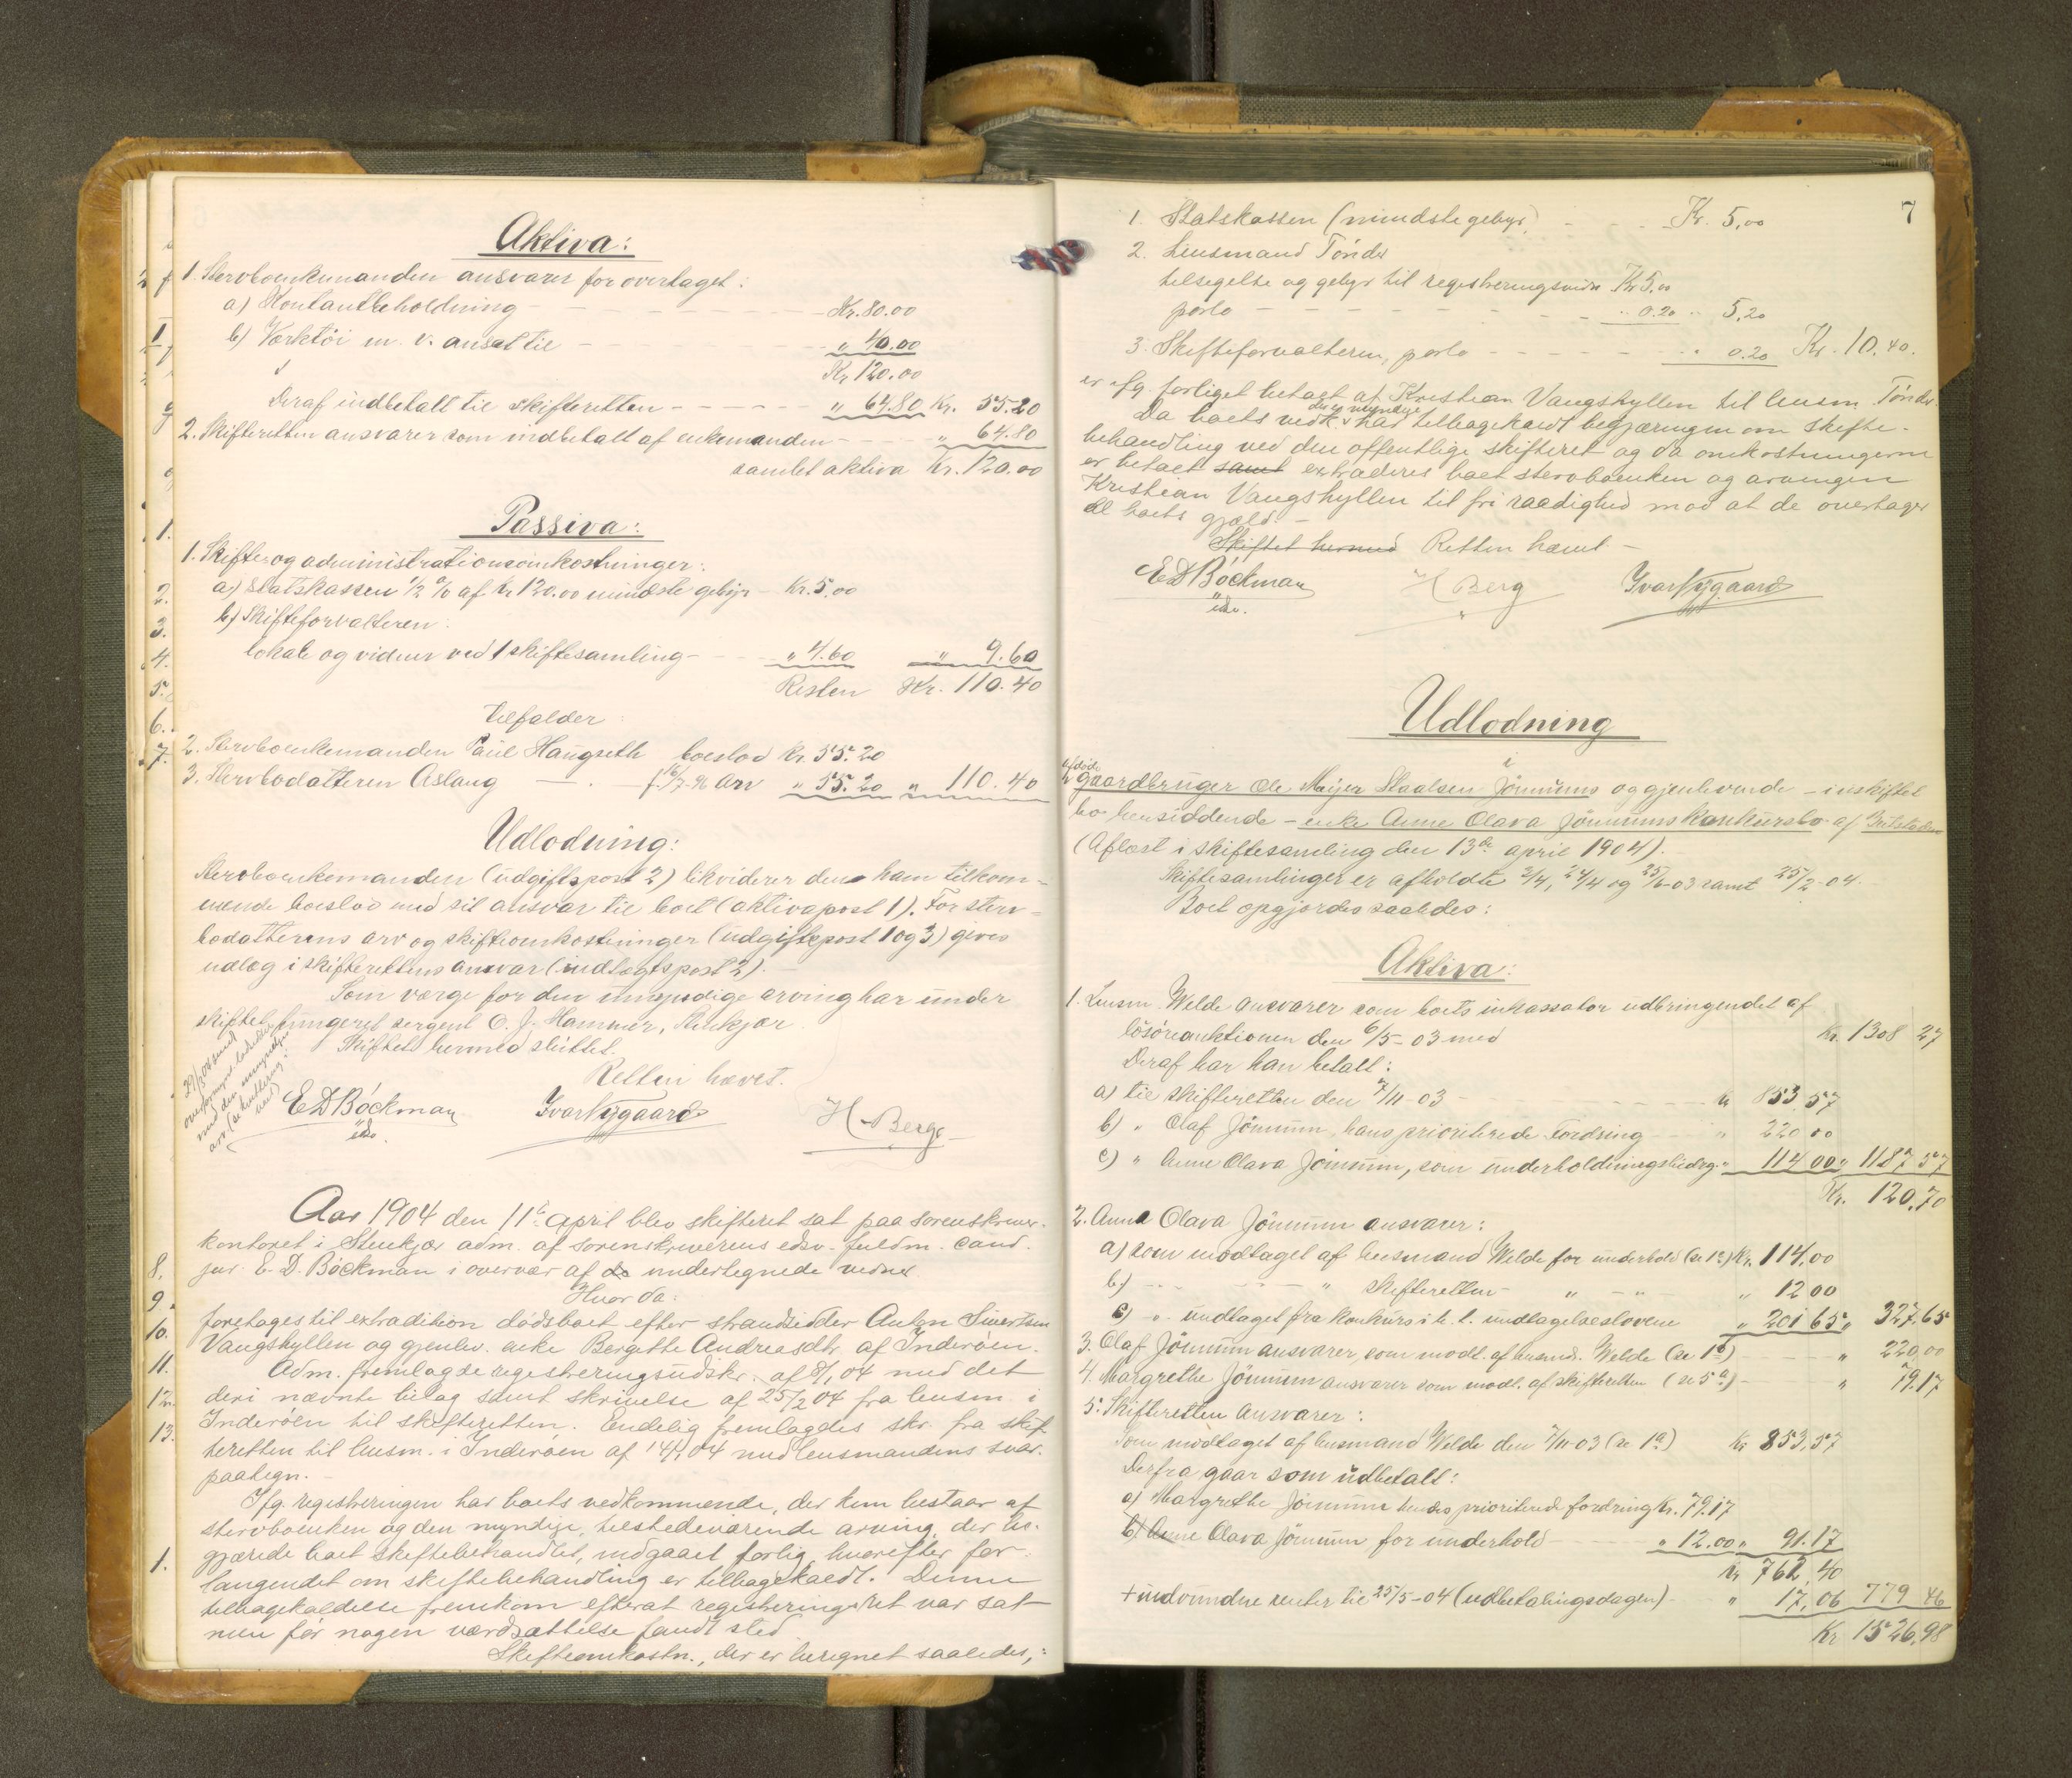 Aktiva:
1. Stervboenkemanden ansvarer for overtaget:
a) Kontantbeholdning - - - Kr. 80.00
b) Værktöi m. v. ansat til - - - " 40.00
Kr. 120.00
Deraf indbetalt til skifteretten - - - " 64.80 Kr. 55.20
2. Skifteretten ansvarer som indbetalt af enkemanden - " 64.80
samlet aktiva Kr. 120.00
Passiva:
1. Skifte og administrationsomkostninger:
a) Statskassen 1/2 % af Kr 120.00 mindste gebyr - Kr. 5.00
b) Skifteforvalteren:
lokale og vidner ved 1 skiftesamling - " 4.60 " 9.60
Resten Kr. 110.40
tilfalder:
2. Stervboenkemanden Paul Haugseth boeslod Kr. 55.20
3. Stervbodatteren Aslaug - f. 16/7-96 Arv " 55.20 " 110.40
Udlodning:
Stervboenkemanden (udgiftspost 2) likviderer den ham tilkom-
mende boeslod med sit ansvar til boet (aktivapost 1). For sterv-
bodatterens arv og skifteomkostninger (udgiftspost 1 og 3) gives
udlæg i skifterettens ansvar (indtægtspost 2).
Som værge for den umyndige arving har under
skiftet fungeret sergent O. J. Hammer, Stenkjær
Skiftet hermed sluttet.
Retten hævet.
E D Böckman
edsv.
Ivar Nygaard
H. Berg
Aar 1904 den 11te april blev skifteret sat paa sorenskriver-
kontoret i Stenkjær adm. af sorenskriverens edsv. fuldm. cand.
jur. E. D. Böckman i overvær af undertegnede vidner.
Hvor da:
foretages til extradition dödsboet efter strandsidder Anton Sivertsen
Vangshyllen og gjenlev. enke Bergitte Andreasdtr. af Inderöen.
Adm. fremlagde registreringsudskr. af 8/1 04 med det
deri nævnte bilag samt skrivelse af 25/2 04 fra lensm. i
Inderöen til skifteretten. Endelig fremlagdes skr. fra skif-
teretten til lensm. i Inderöen af 14/1 04 med lensmandens svar-
paategn. -
Ifg. registreringen har boets vedkommende, der kun bestaar af
stervboenken og den myndige, tilstedeværende arving, der be-
gjærede boet skiftebehandlet, indgaaet forlig, hvorefter for-
langendet om skiftebehandling er tilbagekaldt. Denne
tilbagekaldelse fremkom efterat registreringsret var sat
men för nogen værdsættelse fandt sted.
Skifteomkostn., der er beregnet saaledes,:
7
1. Statskassen (mindste gebyr) - - - Kr. 5,00
2. Lensmand Tönder
tilsigelse og gebyr til registreringsvidn. Kr 5.00
porto - - - " 0.20 " 5,20
3. Skifteforvalteren, porto - - - " 0.20 Kr. 10.40.
er ifg. forliget betagt af Kristian Vangshyllen til lensm. Tönder
Da boets vedk. der er myndige har tilbagekaldt begjæringen om skifte-
behandling ved den offentlige skifteret og da omkostningerne
er betalt samt extraderes boet stervboenken og arvingen
Kristian Vangshyllen til fri raadighed mod at de overtager
al boets gjæld. -
Skiftet hermed Retten hævet -
E D Böckman
edsv.
H Berg
Ivar Nygaard
Udlodning
i
afdöde
gaardbruger Ole Meyer Staalsen Jömnums og gjenlevende - i uskiftet
bo hensiddende - enke Anne Olava Jömnums Konkursbo af
(Aflæst i skiftesamling den 13de april 1904).
Skiftesamlinger er afholdte 2/4, 24/4 og 25/6-03 samt 25/2-04.
Boet opgjordes saaledes:
Aktiva:
1. Lensm. Welde ansvarer som boets inkassator udbringendet af
lösöreauktionen den 6/5-03 med Kr. 1308 27
Deraf har han betalt:
a) til skifteretten den 7/11-03 - - - Kr 853,57
b) " Olaf Jömnum, hans prioriterede fordring - " 220 00
c) " Anne Olava Jömnum, som underholdningsbidrag " 114 00 " 1187 57
Kr. 120,70
2. Anna Olava Jömnum ansvarer:
a) som modtaget af lensmand Welde for underhold (se 1c) Kr. 114,00
b) - - - " skifteretten - " - " 12 00
c) " undtaget fra konkurs i h. t. undtagelsesloven " 201 65 " 327,65
3. Olaf Jömnum ansvarer, som modt. af lensmd. Welde (se 1b) - " 220,00
4. Margrethe Jömnum ansvarer som modt. af skifteretten (se 5a) - " 79.17
5. Skifteretten ansvarer:
Som modtaget af lensmand Welde den 7/11-03 (se 1a) Kr 853,57
Derfra gaar som udbetalt:
a) Margrethe Jömnum hendes prioriterede fordring Kr. 79.17
b) Anne Olava Jömnum for underhold - " 12.00 " 91.17
Kr 762,40
+ indvundne renter til 25/5-04 (udbetalingsdagen) - " 17,06 779 46
Kr 1526,98